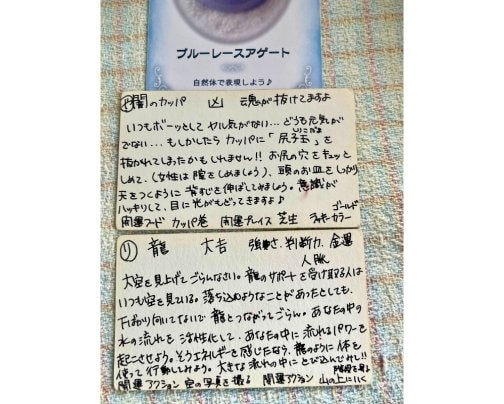 ブルーレースアゲート
自然体で表現しよう♪
闇のカッパ 凶 魂が抜けてますよ
いつもボーッとして ヤル気がない… どうも元気が
でない… もしかしたら カッパに「尻子玉」を
抜かれてしまったかもしれません!! お尻の穴をキュッと
しめて、(女性は膣をしめましょう)、頭のお皿をしっかり
天をつくように 背すじを伸ばしてみましょう。意識が
ハッキリして、目に光がもどってきますよ♪
開運フード カッパ巻 開運プレイス 芝生 ラッキーカラー ゴールド
り 龍 大吉 強さ、判断力、金運
人脈
大空を見上げてごらんなさい。龍のサポートを受け取る人は
いつも空を見ている。落ち込むようなことがあったとしても、
下ばかり向いてないで 龍とつながってごらん。あなたの中の
水の流れを活性化して、あなたの中に流れるパワーを
起こさせよう。そうエネルギーを感じたなら、龍のように体を
使って行動してみよう。大きな流れの中にとび込んでみて!!
開運アクション 空の写真を撮る 開運アクション 山の上に行く